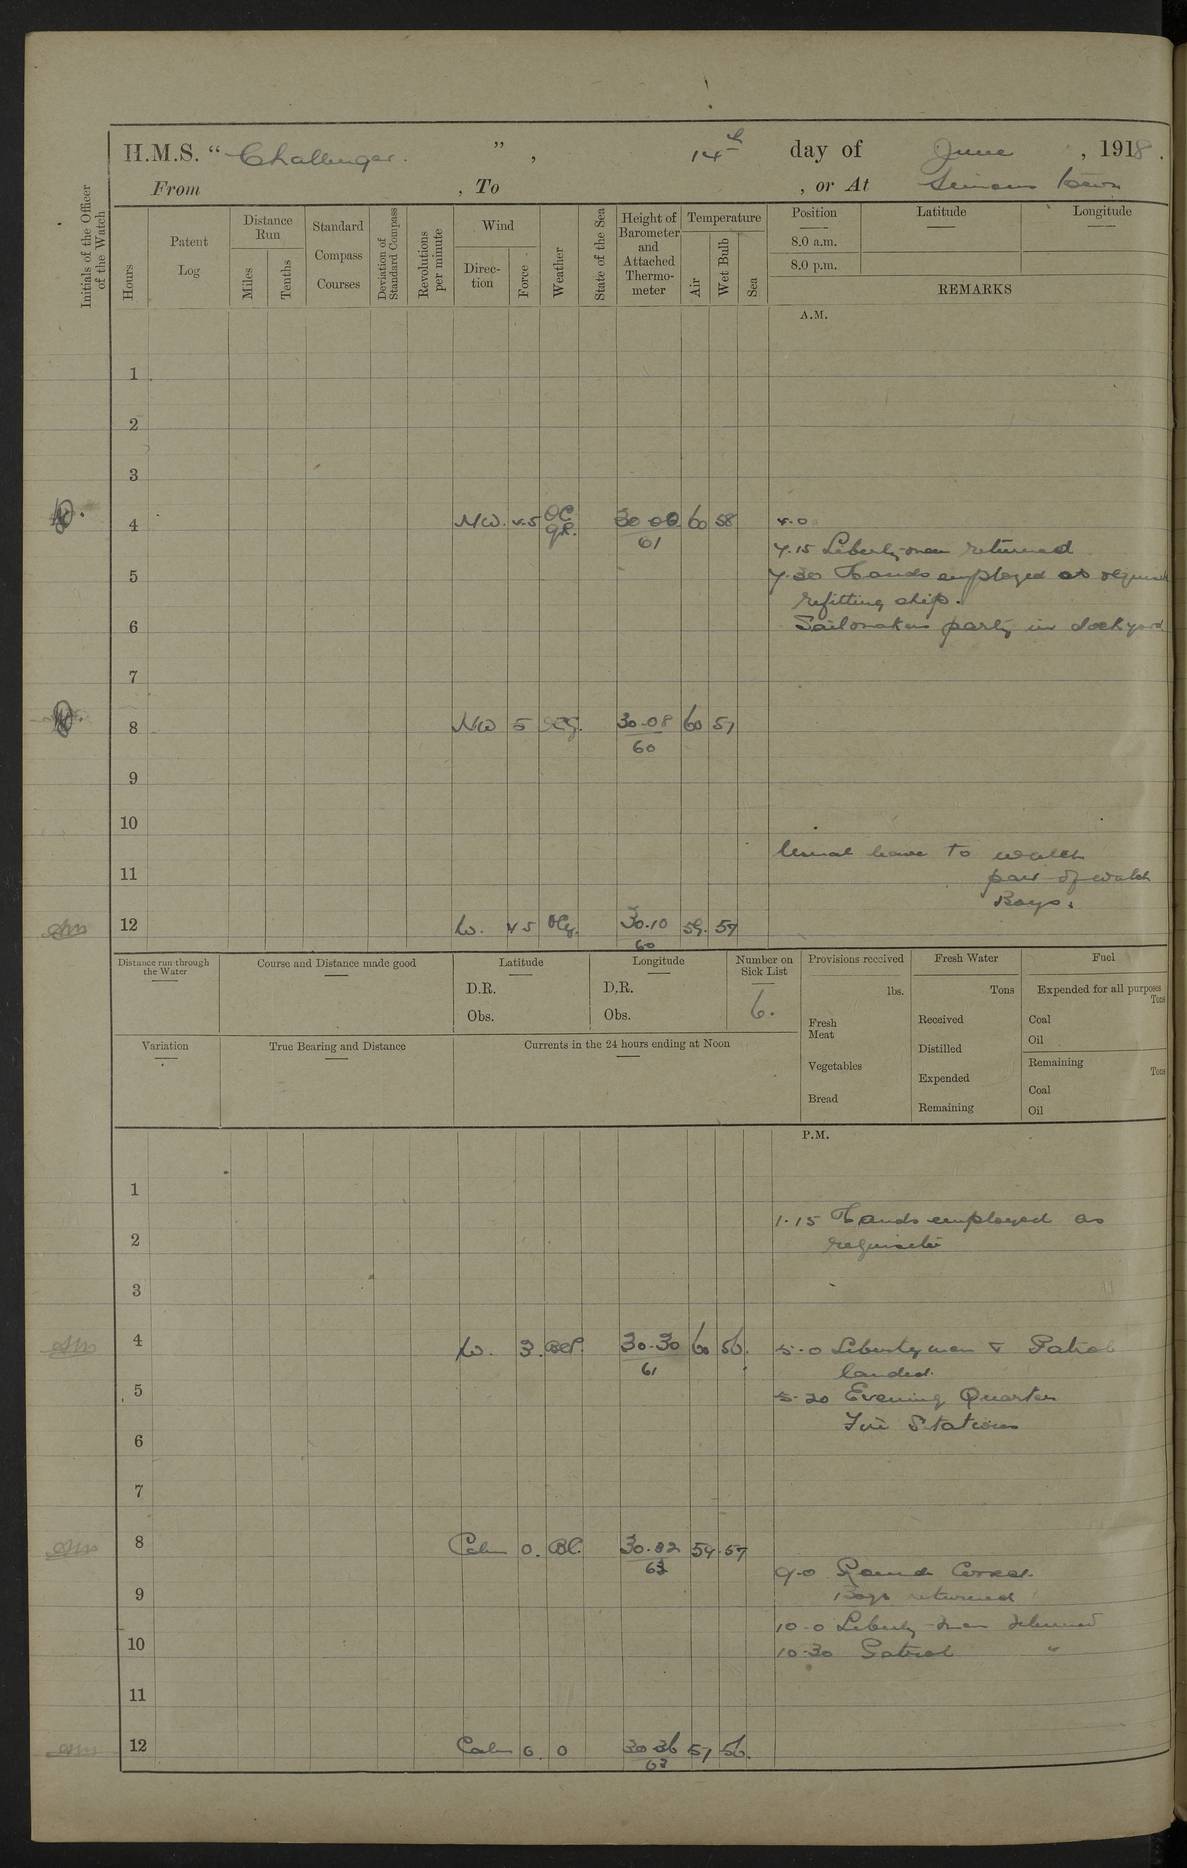 H.M.S. “Challenger.” , 14th day of June , 1918.
From , To , or At Simons Town
Initials of the Officer of the Watch
Hours
Patent Log
Distance Run
Miles
Tenths
Standard Compass Courses
Deviation of Standard Compass
Revolutions per minute
Wind
Direction
Force
Weather
State of the Sea
Height of Barometer and Attached Thermometer
Temperature
Air
Wet Bulb
Sea
Position
Latitude
Longitude
8.0 a.m.
8.0 p.m.
REMARKS
A.M.
1
2
3
4 NW. 4.5 OC qR. 30.00 61 60 58 4.0
7.15 Liberty men returned
5 7.30 Hands employed as
refitting ship.
6 Sailmakers party in dockyard
7
8 NW 5 30.08 60 60 57
9
10
Usual leave to watch
11 part of watch
Boys.
12 W. 4 5 30.10 60 59. 57
Distance run through the Water
Course and Distance made good
Latitude
D.R.
Obs.
Longitude
D.R.
Obs.
Number on Sick List
6.
Provisions received
lbs.
Fresh Meat
Vegetables
Bread
Fresh Water
Tons
Received
Distilled
Expended
Remaining
Fuel
Expended for all purposes
Tons
Coal
Oil
Remaining
Tons
Coal
Oil
Variation
True Bearing and Distance
Currents in the 24 hours ending at Noon
P.M.
1
1.15 Hands employed as
2 requisite
3
4 W. 3. BCP. 30.30 61 60 56. 5.0 Liberty men & Patrol
landed.
5 5.20 Evening Quarters
Fire Stations
6
7
8 Calm 0. BC. 30.32 63 59. 57
9.0 Rounds Correct.
9 Boys returned
10.0 Liberty men returned
10 10.30 Patrol "
11
12 Calm 0. 0 30.36 63 57 56.